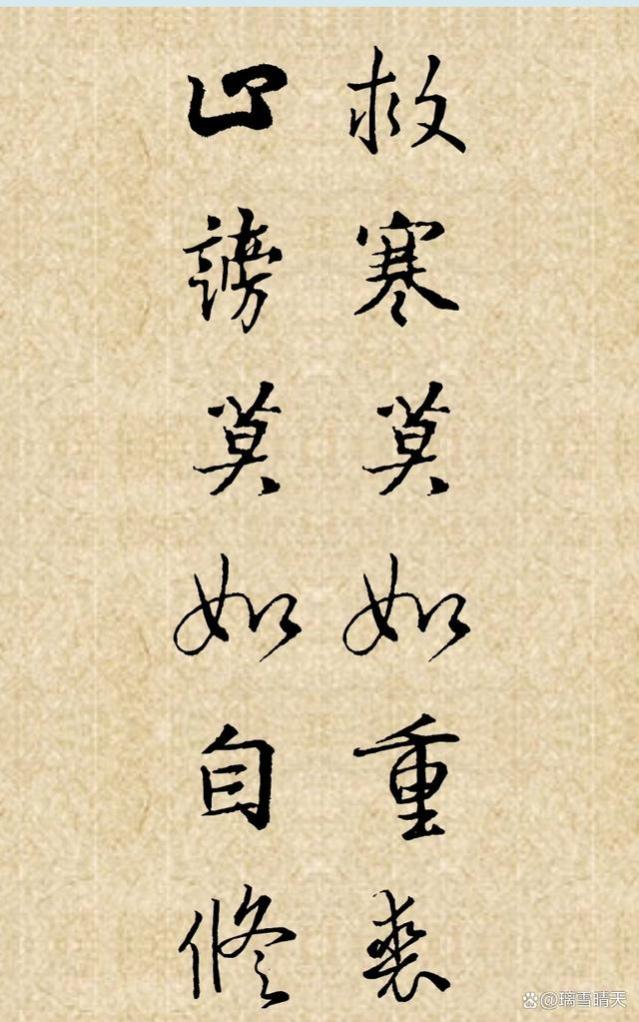 救寒莫如重裘
止謗莫如自修
@璃雪晴天